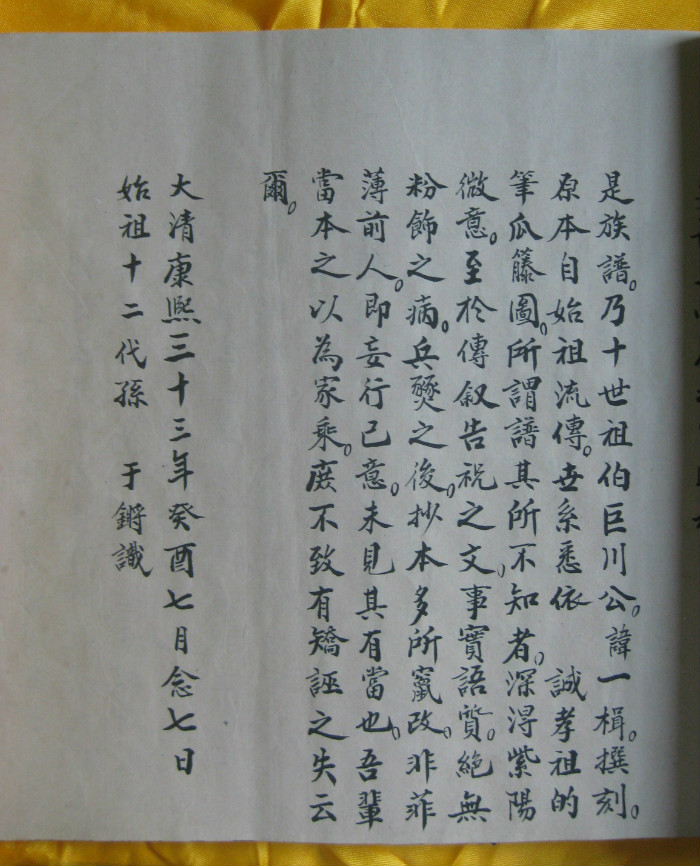 是族譜。乃十世祖伯巨川公。諱一楫。撰刻。
原本自始祖流傳。世系悉依 誠孝祖的
筆瓜籐圖。所謂譜其所不知者。深淂紫陽
微意。至於傳叙告祝之文。事實語質。絕無
粉飾之病。兵燹之後。抄本多所竄改。非菲
薄前人。即妄行己意。未見其有當也。吾輩
當本之以為家乘。庻不致有矯誣之失云
爾。
大清康熙三十三年癸酉七月念七日
始祖十二代孫 于鏘識